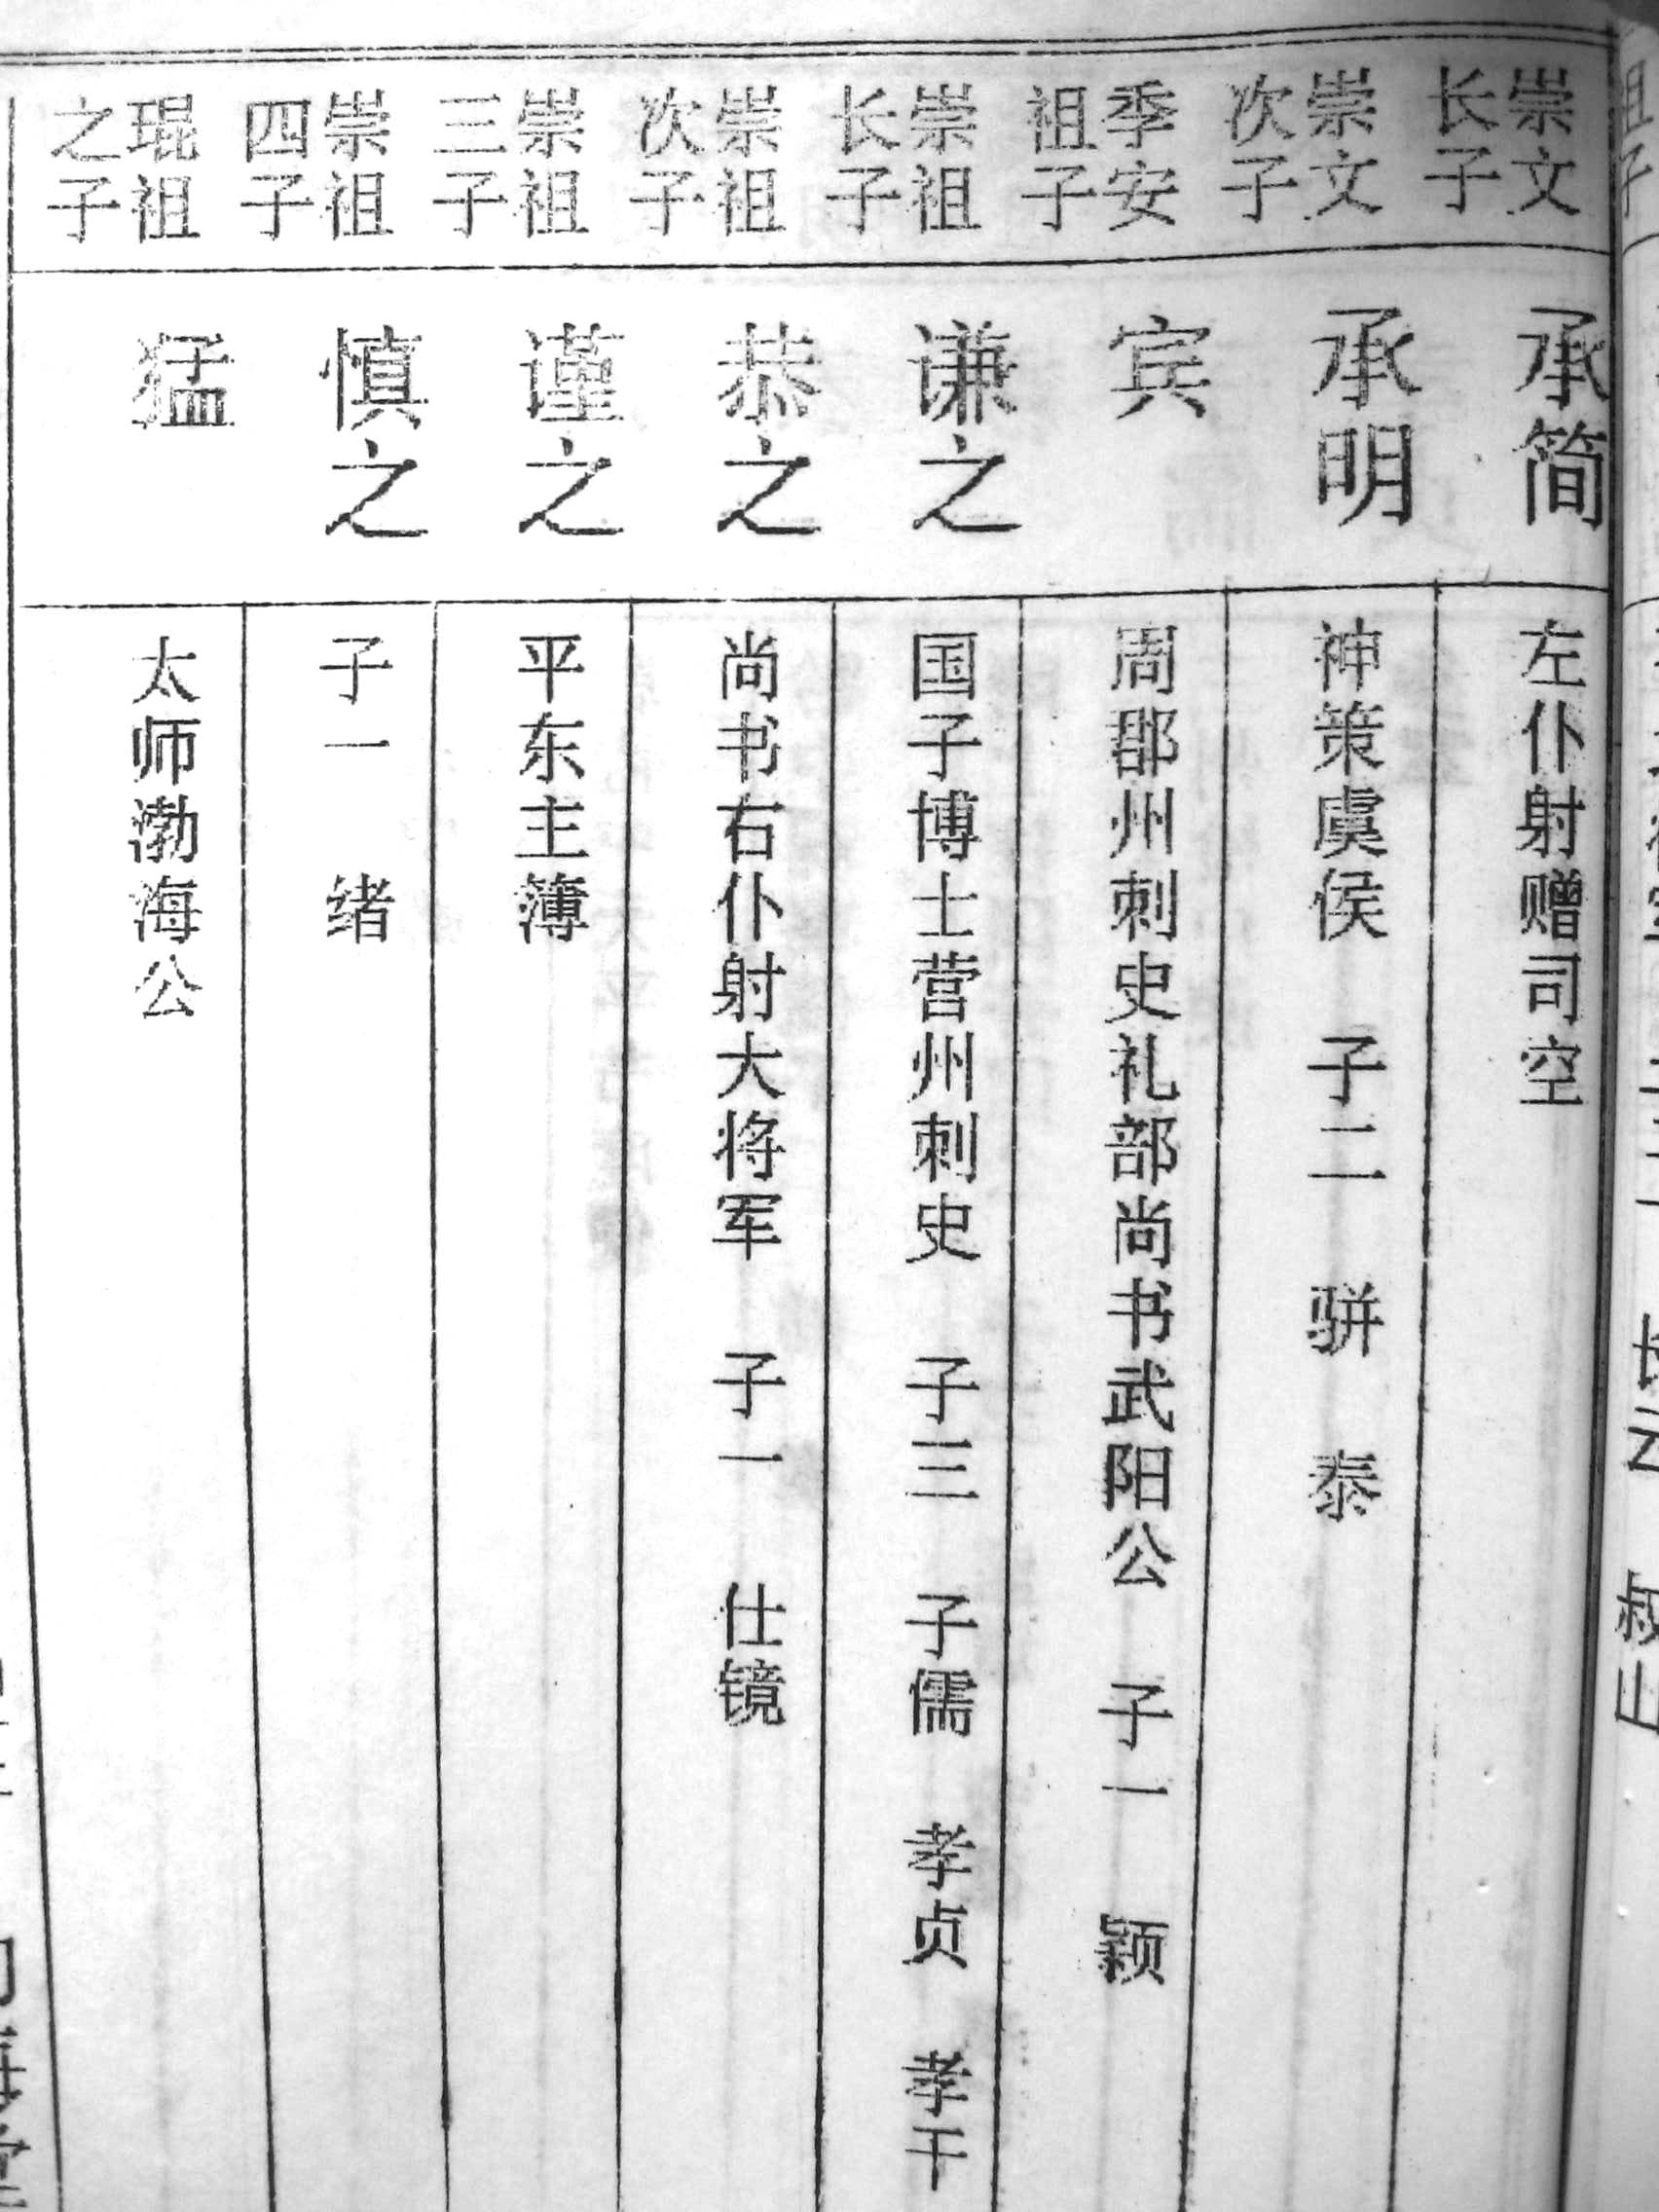 崇文
长子
承简
左仆射赠司空
崇文
次子
承明
神策虞侯 子二 骈 泰
季安
祖子
宾
周郡州刺史礼部尚书武阳公 子一 颖
崇祖
长子
谦之
国子博士营州刺史 子三 子儒 孝贞 孝干
崇祖
次子
恭之
尚书右仆射大将军 子一 仕镜
崇祖
三子
谨之
平东主簿
崇祖
四子
慎之
子一 绪
琨祖
之子
猛
太师渤海公